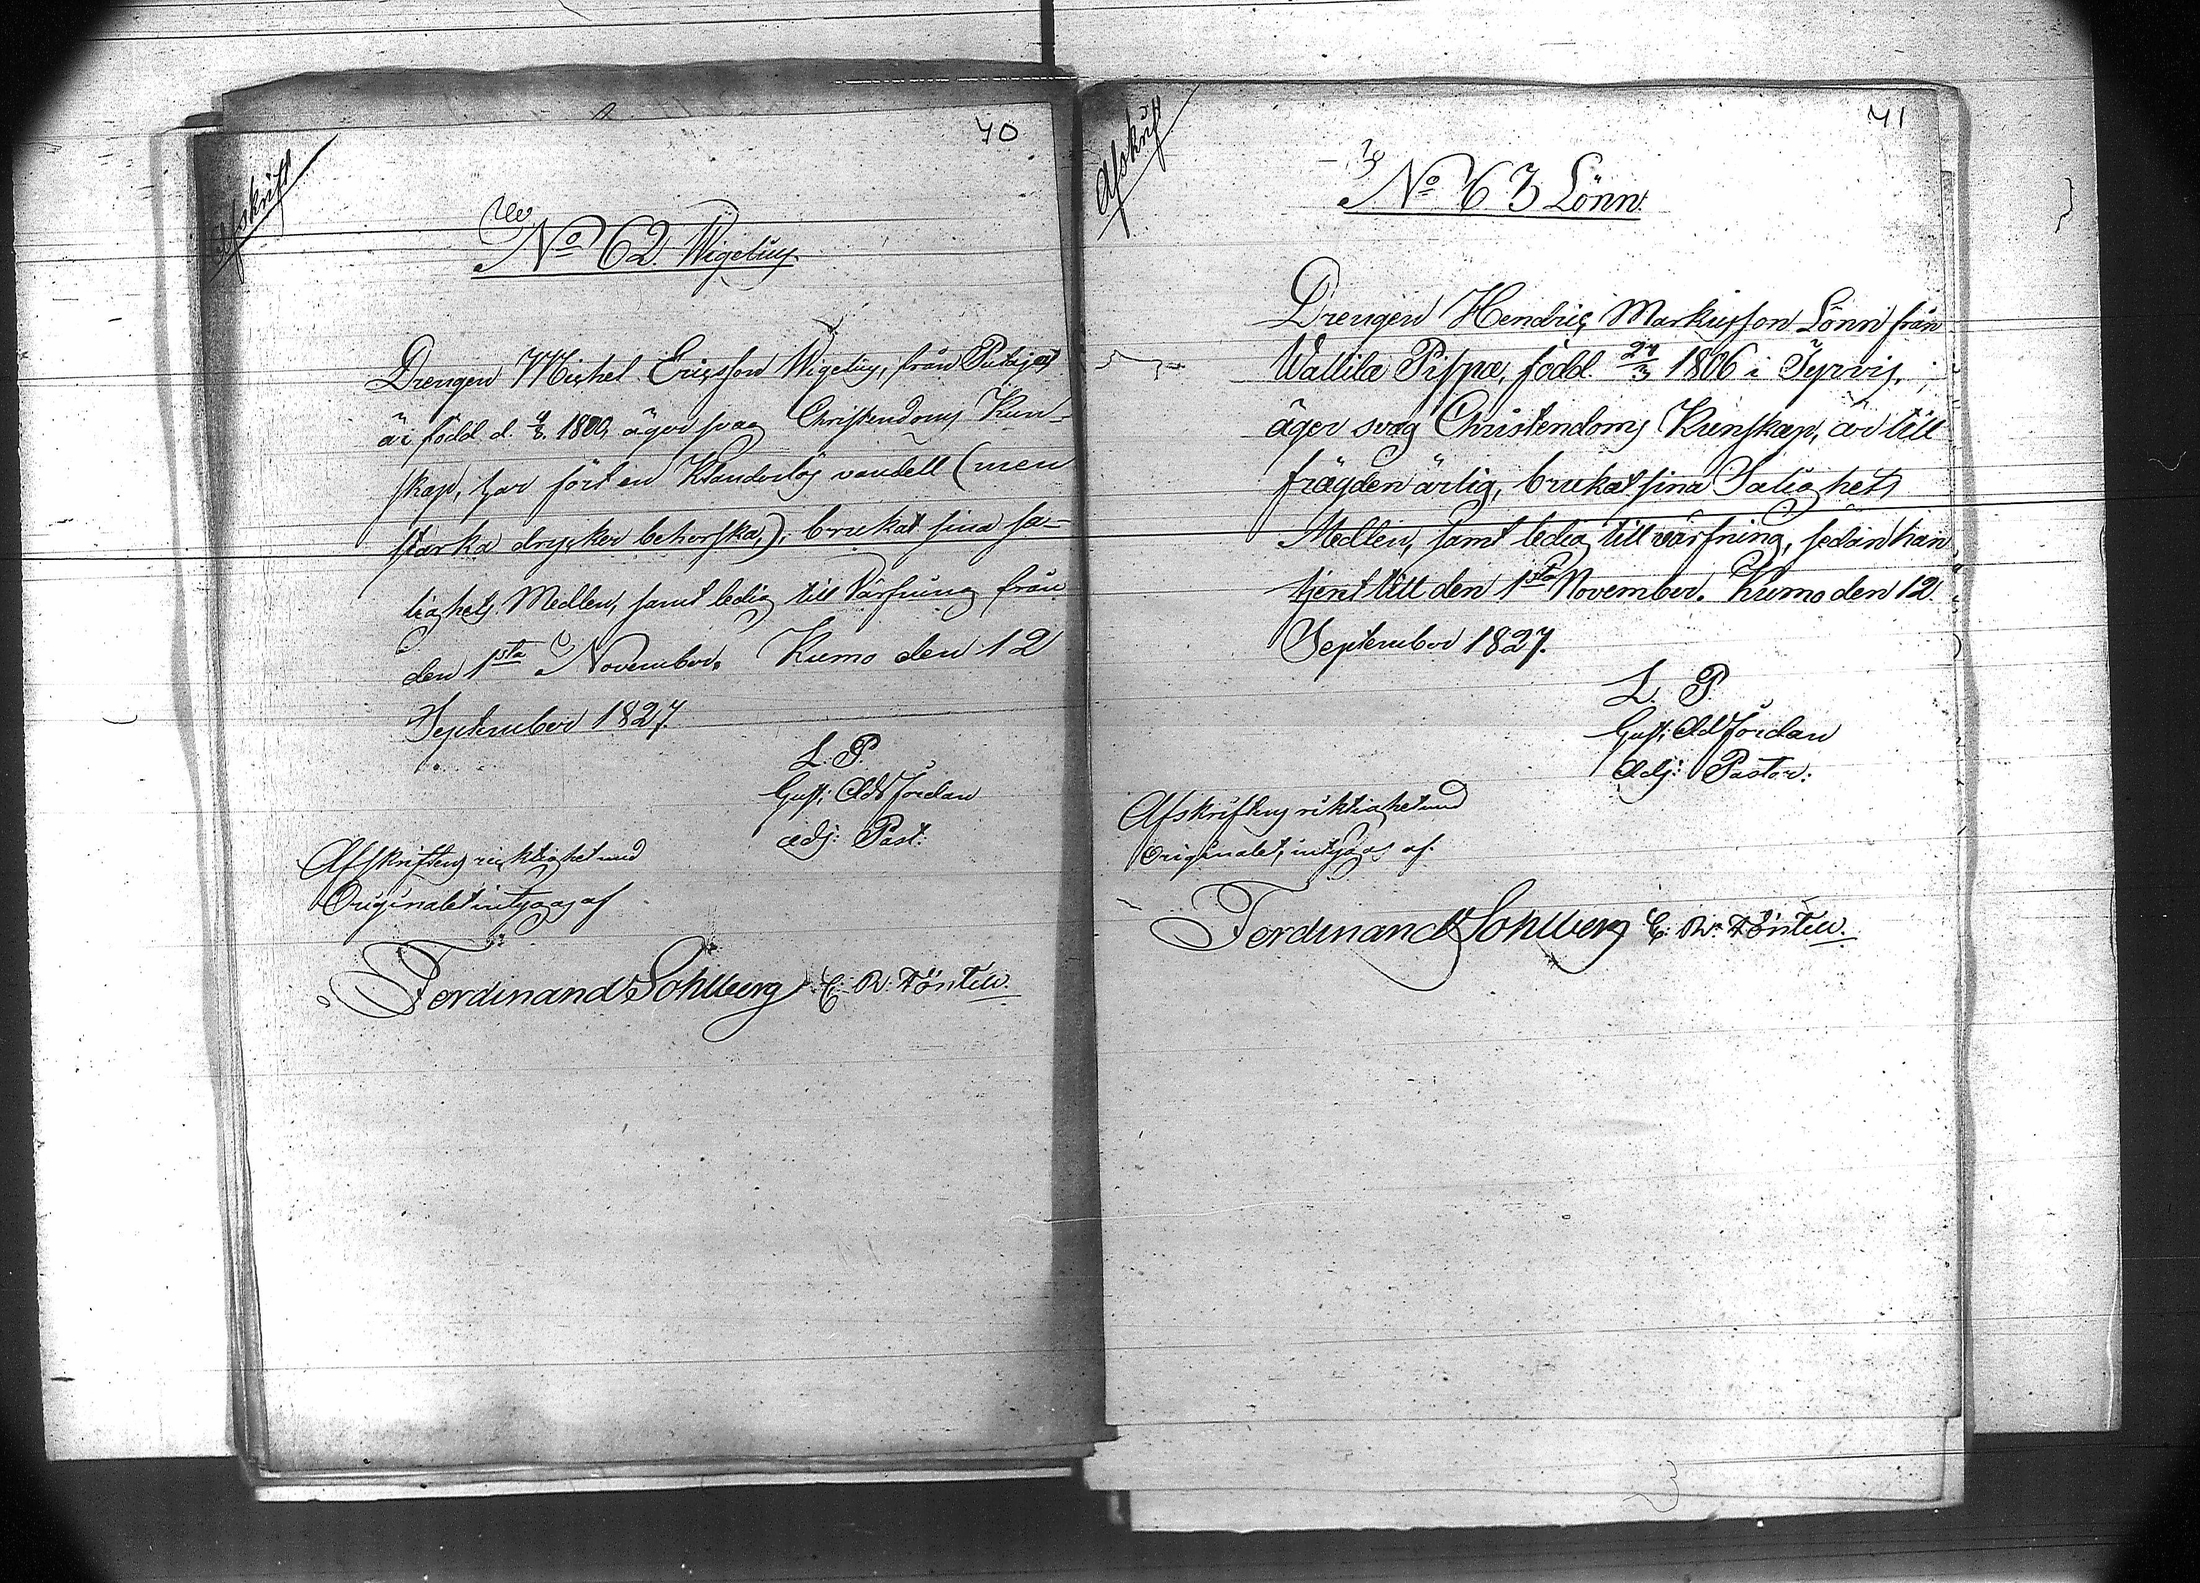 40
Afskrift
No 62 Wigelius
Drengen Michel Ericsson Wigelius, från
är född d. 4/3 1800, äger svag Christendoms Kun-
skap, har fört en Klanderlös vandell (men
starka drycker beherska,) brukat sina sa-
lighets Medlen, samt ledig till Värfning från
den 1sta November. Kumo den 12
September 1827.
L. P.
Gust: Ad Jordan
adj: Past:
Afskriftens ricktighet med
Originalet intygas af
Ferdinand Sohlberg E. W.
41
Afskrift
No 63 Lönn.
Drengen Hendric Markusson Lönn från
Wallila Pispa, född 27/3 1806 i Tyrvis,
äger svag Christendoms Kunskap, är till
frägden ärlig, brukat sina Salighets
Medlen, samt ledig till värfning, sedan han
tjent till den 1sta November. Kumo den 12
September 1827.
L. P.
Gust: Ad Jordan
Adj: Pastor.
Afskriftens riktighet med
Originalet, intygas af.
Ferdinand Sohlberg E. W.